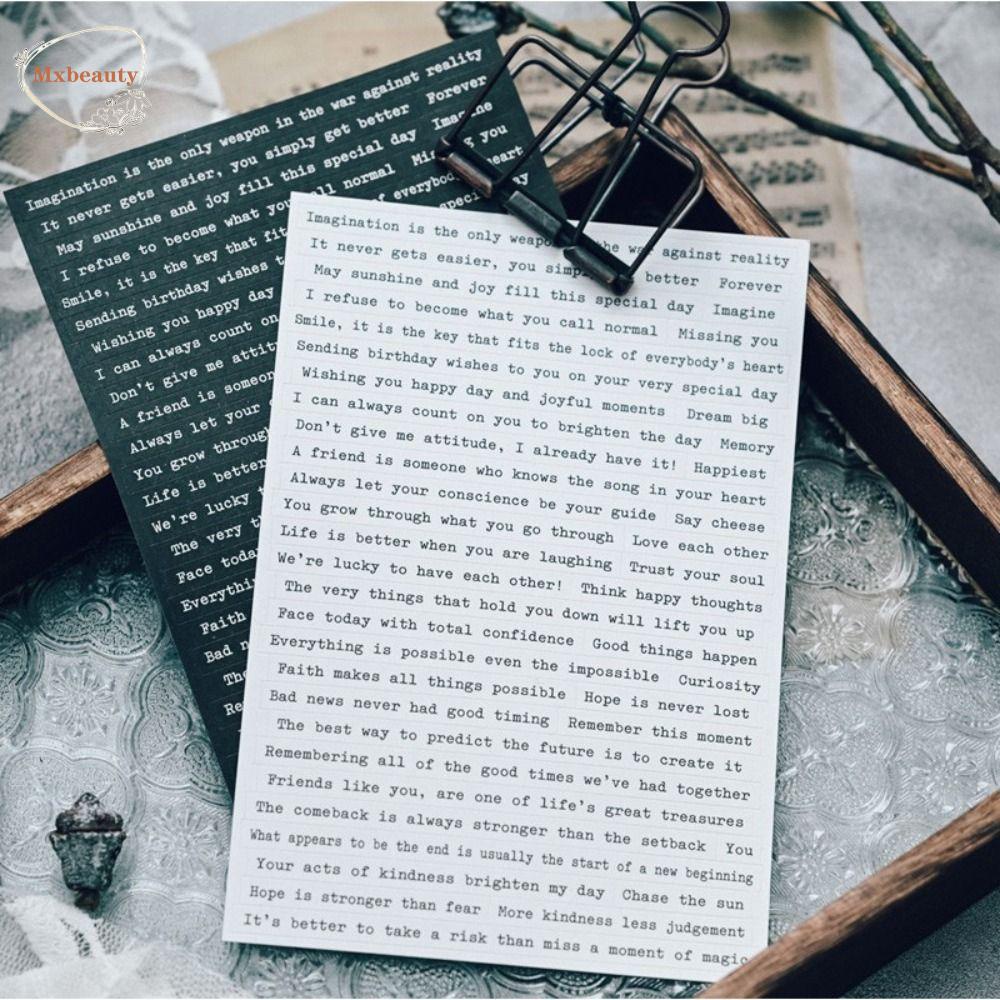 Mxbeauty
Imagination is the only weapon in the war against reality
It never gets easier, you simply get better Forever
May sunshine and joy fill this special day Imagine
I refuse to become what you call normal Missing you
Smile, it is the key that fit of everybody heart
Sending birthday wishes
Wishing you happy day
I can always count on
Don't give me
A friend is
Always let your
You grow through
Life is better
We're lucky
The very
Face today
Everything
Faith
Bad
Imagination is the only the war against reality
It never gets easier, you better Forever
May sunshine and joy fill this special day Imagine
I refuse to become what you call normal Missing you
Smile, it is the key that fits the lock of everybody's heart
Sending birthday wishes to you on your very special day
Wishing you happy day and joyful moments Dream big
I can always count on you to brighten the day Memory
Don't give me attitude, I already have it! Happiest
A friend is someone who knows the song in your heart
Always let your conscience be your guide Say cheese
You grow through what you go through Love each other
Life is better when you are laughing Trust your soul
We're lucky to have each other! Think happy thoughts
The very things that hold you down will lift you up
Face today with total confidence Good things happen
Everything is possible even the impossible Curiosity
Faith makes all things possible Hope is never lost
Bad news never had good timing Remember this moment
The best way to predict the future is to create it
Remembering all of the good times we've had together
Friends like you, are one of life's great treasures
The comeback is always stronger than the setback You
What appears to be the end is usually the start of a new beginning
Your acts of kindness brighten my day Chase the sun
Hope is stronger than fear More kindness less judgement
It's better to take a risk than miss a moment of magic